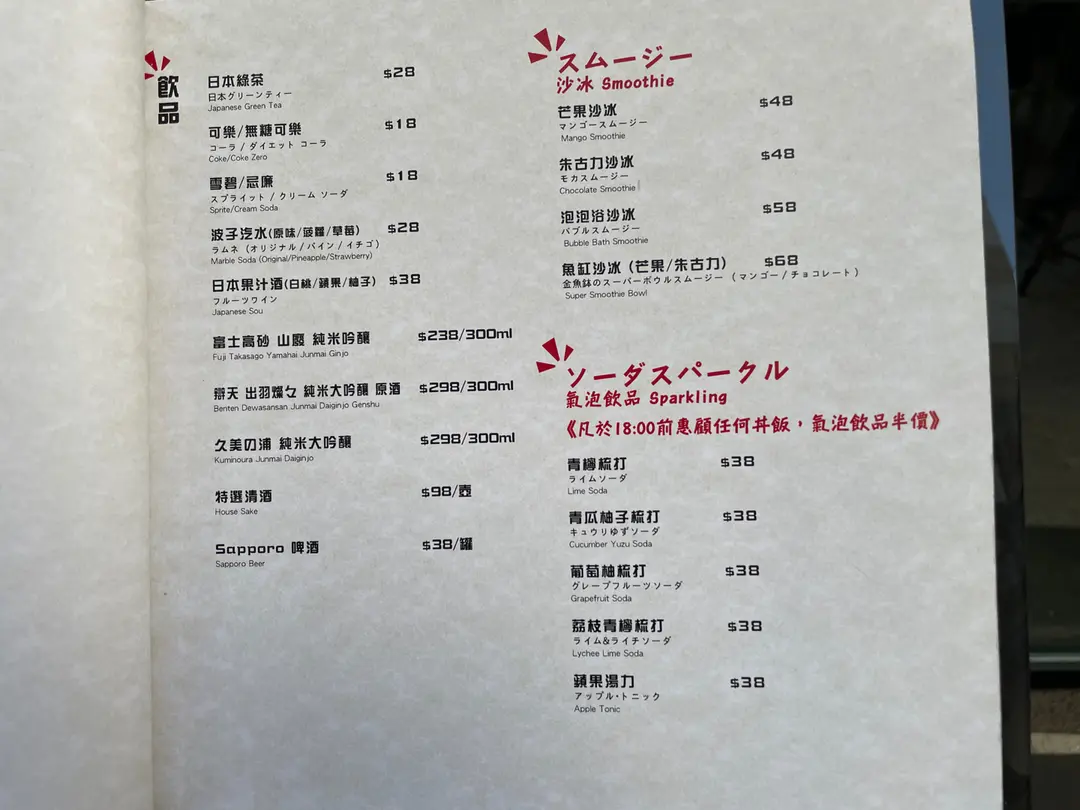 飲品
日本綠茶 $28
日本グリーンティー
Japanese Green Tea
可樂/無糖可樂 $18
コーラ / ダイエット コーラ
Coke/Coke Zero
雪碧/忌廉 $18
スプライット / クリーム ソーダ
Sprite/Cream Soda
波子汽水(原味/菠蘿/草莓) $28
ラムネ (オリジナル / パイン / イチゴ)
Marble Soda (Original/Pineapple/Strawberry)
日本果汁酒(白桃/蘋果/柚子) $38
フルーツワイン
Japanese Sou
富士高砂 山廢 純米吟釀 $238/300ml
Fuji Takasago Yamahai Junmai Ginjo
辯天 出羽燦々 純米大吟釀 原酒 $298/300ml
Benten Dewasansan Junmai Daiginjo Genshu
久美の浦 純米大吟釀 $298/300ml
Kuminoura Junmai Daiginjo
特選清酒 $98/壺
House Sake
Sapporo 啤酒 $38/罐
Sapporo Beer
スムージー
沙冰 Smoothie
芒果沙冰 $48
マンゴースムージー
Mango Smoothie
朱古力沙冰 $48
モカスムージー
Chocolate Smoothie
泡泡浴沙冰 $58
バブルスムージー
Bubble Bath Smoothie
魚缸沙冰 (芒果/朱古力) $68
金魚鉢のスーパーボウルスムージー (マンゴー / チョコレート)
Super Smoothie Bowl
ソーダスパークル
氣泡飲品 Sparkling
《凡於18:00前惠顧任何丼飯，氣泡飲品半價》
青檸梳打 $38
ライムソーダ
Lime Soda
青瓜柚子梳打 $38
キュウリゆずソーダ
Cucumber Yuzu Soda
葡萄柚梳打 $38
グレープフルーツソーダ
Grapefruit Soda
荔枝青檸梳打 $38
ライム&ライチソーダ
Lychee Lime Soda
蘋果湯力 $38
アップル・トニック
Apple Tonic